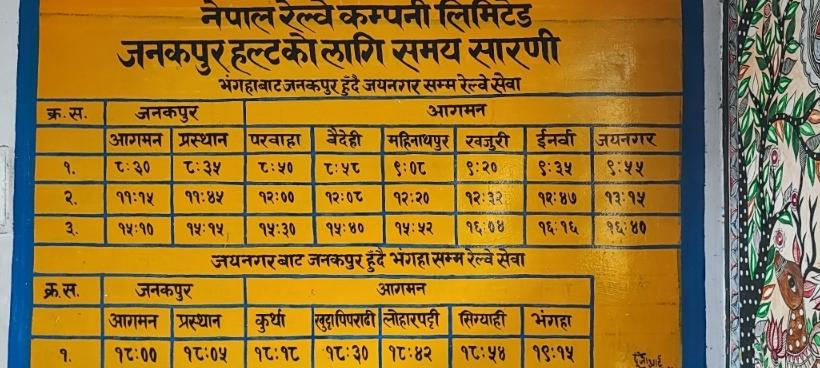 नेपाल रेल्वे कम्पनी लिमिटेड
जनकपुर हल्टको लागि समय सारणी
भंगहाबाट जनकपुर हुँदै जयनगर सम्म रेल्वे सेवा
क्र.स. जनकपुर आगमन
आगमन प्रस्थान परवाहा बैदेही महिनाथपुर खजुरी ईनर्वा जयनगर
१. ८:३० ८:३५ ८:५० ८:५८ ९:०८ ९:२० ९:३५ ९:५५
२. ११:१५ ११:४५ १२:०० १२:०८ १२:२० १२:३२ १२:४७ १३:१५
३. १५:१० १५:१५ १५:३० १५:४० १५:५२ १६:०४ १६:१६ १६:४०
जयनगरबाट जनकपुर हुँदै भंगहा सम्म रेल्वे सेवा
क्र.स. जनकपुर आगमन
आगमन प्रस्थान कुर्था खुट्टापिपराढी लोहारपट्टी सिग्याही भंगहा
१. १८:०० १८:०५ १८:१८ १८:३० १८:४२ १८:५४ १९:१५